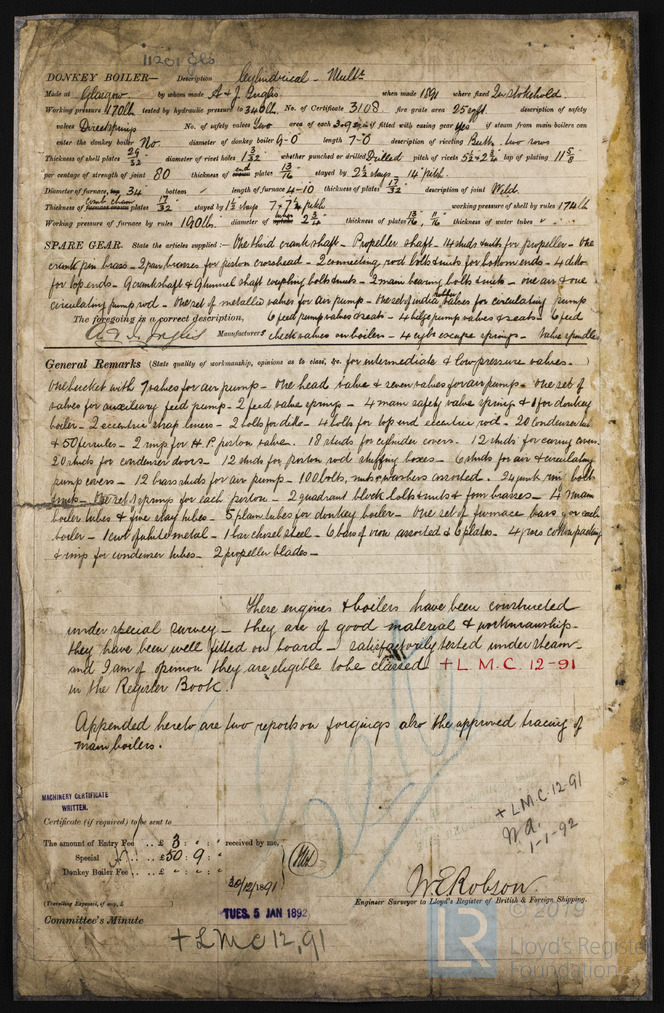 11201 gls
DONKEY BOILER— Description Cylindrical - Multr
Made at Glasgow by whom made A & J Inglis when made 1891 where fixed In Stokehold.
Working pressure 170lb tested by hydraulic pressure to 340lb. No. of Certificate 3108 fire grate area 25 sqft. description of safety
valves Direct springs No. of safety valves Two area of each if fitted with easing gear yes if steam from main boilers can
enter the donkey boiler No. diameter of donkey boiler 9-0 length 7-0 description of riveting Butt two rows
Thickness of shell plates 29/32 diameter of rivet holes 1 3/32 whether punched or drilled Drilled pitch of rivets lap of plating 11 5/8
per centage of strength of joint 80 thickness of end plates 13/16 stayed by 2 1/2 stays 14" pitch
Diameter of furnace, top 34" bottom " length of furnace 4-10 thickness of plates 17/32 description of joint Weld.
Thickness of comb cham plates 17/32 stayed by 1 1/2 stays 7 × 7 1/2 pitch working pressure of shell by rules 174 lb
Working pressure of furnace by rules 190 lb. diameter of 2 3/4 thickness of plates thickness of water tubes
SPARE GEAR. State the articles supplied:— One third crank shaft - Propeller shaft - 14 studs & nuts for propeller - One
crank pin brass - 2 pair brasses for piston crosshead - 2 connecting rod bolts & nuts for bottom ends - 4 do
for top ends - 9 crankshaft & 9 tunnel shaft coupling bolts & nuts - 2 main bearing bolts & nuts - one air & one
circulating pump rod - One set of metallic valves for air pump - One set of india rubber valves for circulating pump
The foregoing is a correct description, 6 feed pump valves & seats - 4 bilge pump valves & seats - 6 feed
A & J Inglis Manufacturers check valves on boiler - 4 cylr escape springs - Valve spindles
General Remarks (State quality of workmanship, opinions as to class, &c. for intermediate & low pressure valves - )
One bucket with 7 valves for air pump - One head valve & seven valves for air pump - One set of
valves for auxiliary feed pump - 2 feed valve springs - 4 main safety valve springs & 1 for donkey
boiler - 2 eccentric strap liners - 2 bolts for ditto - 4 bolts for top end eccentric rod - 20 Condenser tubes
& 50 ferrules - 2 rings for H.P. piston valve. 18 studs for cylinder covers. 12 studs for casing covers
20 studs for condenser doors - 12 studs for piston rod stuffing boxes - 6 studs for air & circulating
pump covers - 12 brass studs for air pump - 100 bolts, nuts & washers assorted. 24 junk ring bolts
& nuts - One set springs for each piston - 2 quadrant block bolts & nuts & four brasses - 4 main
boiler tubes & five stay tubes - 5 plain tubes for donkey boiler - One set of furnace bars for each
boiler - 1 cwt of white metal - 1 bar chisel steel - 6 bars of iron assorted & 6 plates - 4 gross cotton packing
& rings for condenser tubes - 2 propeller blades -
These engines & boilers have been constructed
under special survey - they are of good material & workmanship -
they have been well fitted on board - satisfactorily tested under steam -
and I am of opinion they are eligible to be classed +L.M.C. 12-91
in the Register Book.
Appended hereto are two reports on forgings also the approved tracing of
main boilers.
MACHINERY CERTIFICATE
WRITTEN.
+L.M.C. 12-91
1-1-92
Certificate (if required) to be sent to
The amount of Entry Fee .. £ 3 : " : " received by me,
Special .. £ 50 : 9 : "
Donkey Boiler Fee .. £ " : " : "
30/12/1891
W.E. Robson.
(Travelling Expenses, if any, £ )
Engineer Surveyor to Lloyd's Register of British & Foreign Shipping.
Committee's Minute
TUES. 5 JAN 1892
+LMC 12,91
© 2019
LR
Lloyd's Register
Foundation